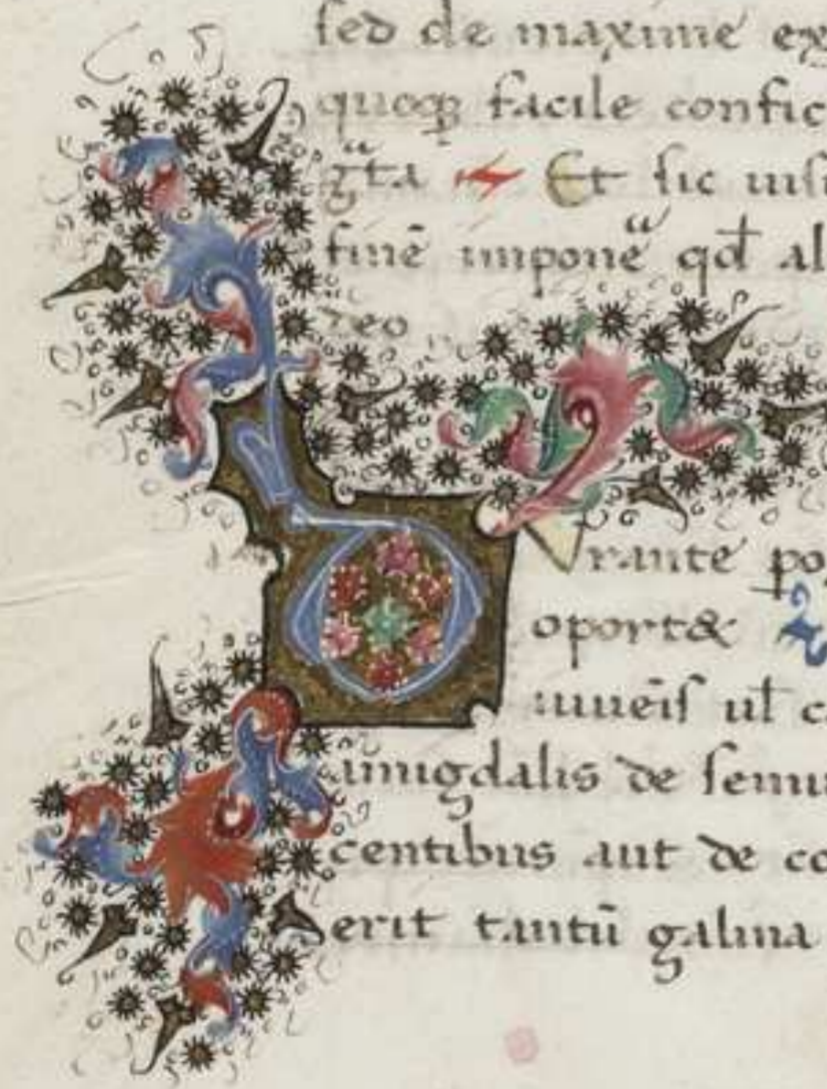 sed de maxime ex
quoqꝫ facile confic
gͣta Et sic
finē imponeͣ qđ al
deo
DVrante po
oport&
ul̄ c
amigdalis de semi
centibus aut de co
erit tantū galina